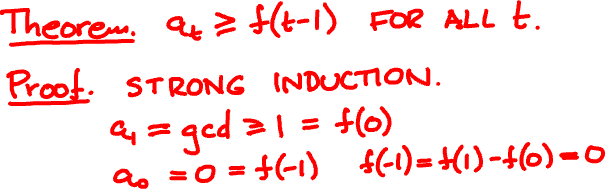 Theorem. a_t ≥ f(t-1) FOR ALL t.
Proof. STRONG INDUCTION.
a_1 = gcd ≥ 1 = f(0)
a_0 = 0 = f(-1) f(-1) = f(1) - f(0) = 0